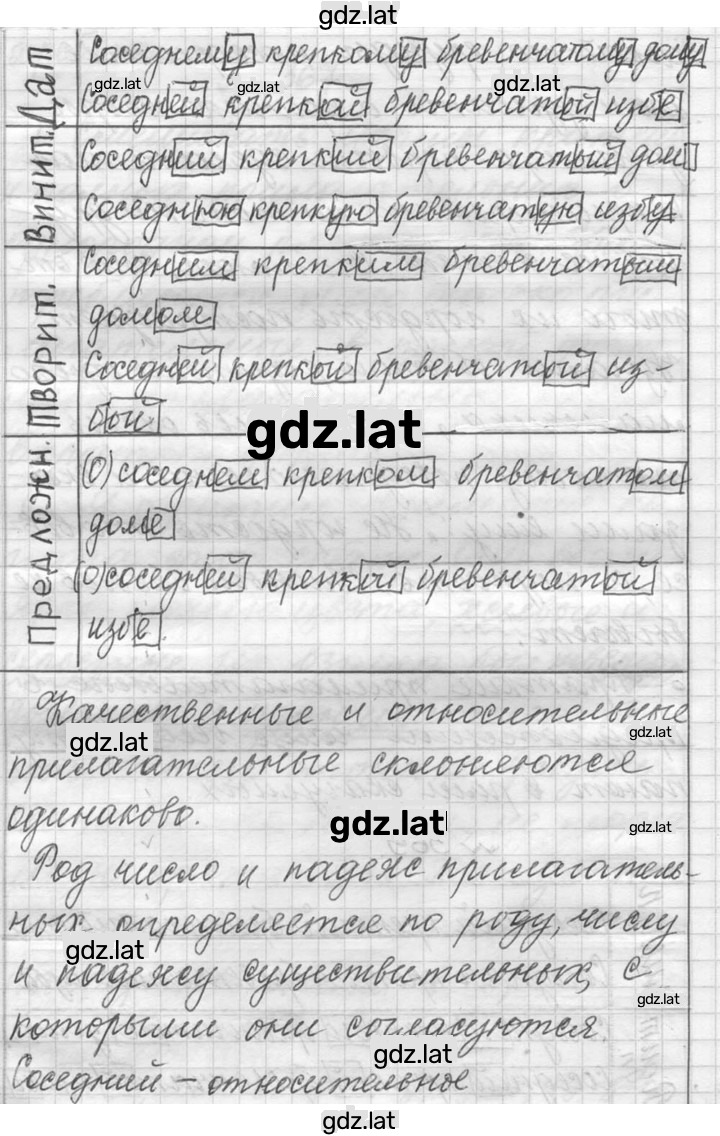 gdz.lat
Дат
Соседнему крепкому бревенчатому дому
gdz.lat gdz.lat gdz.lat
Соседней крепкой бревенчатой избе
Винит.
Соседний крепкий бревенчатый дом
Соседнюю крепкую бревенчатую избу
Творит.
Соседним крепким бревенчатым
домом
Соседней крепкой бревенчатой из-
бой
gdz.lat
Предложн.
(О) соседнем крепком бревенчатом
доме
(о) соседней крепкой бревенчатой
избе.
Качественные и относительные
gdz.lat gdz.lat
прилагательные склоняются
одинаково.
gdz.lat gdz.lat
Род число и падеж прилагатель-
ных определяется по роду, числу
gdz.lat
и падежу существительных, с
gdz.lat
которыми они согласуются.
gdz.lat
Соседний – относительное
gdz.lat